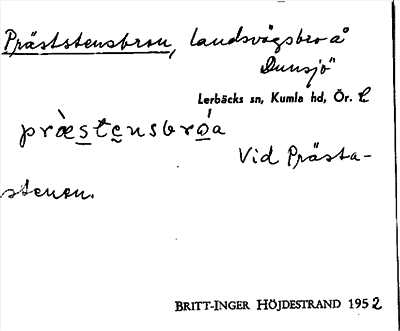 Präststensbron, landsvägsbro å
Dunsjö"
Lerbäcks sn, Kumla hd, Ör. l
præ̀stensbróa
Vid Prästa-
stenen.
BRITT-INGER HÖJDESTRAND 1952